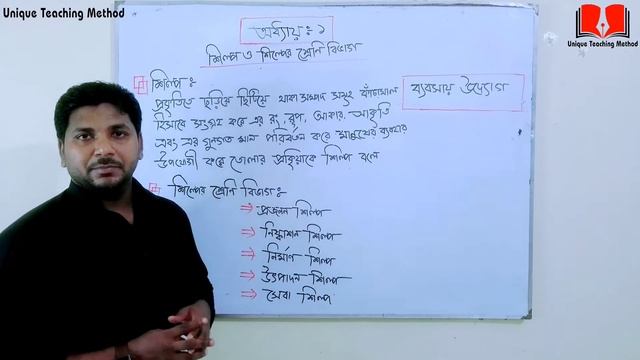 Unique Teaching Method
Unique Teaching Method
অধ্যায়ঃ ১
শিল্প ও শিল্পের শ্রেণি বিভাগ
ব্যবসায় উদ্যোগ
শিল্পঃ
প্রকৃতিতে ছড়িয়ে ছিটিয়ে থাকা সম্পদ সমূহ কাঁচামাল
হিসাবে সংগ্রহ করে এর রং, রূপ, আকার, আকৃতি
এবং এর গুনগত মান পরিবর্তন করে মানুষের ব্যবহার
উপযোগী করে তোলার প্রক্রিয়াকে শিল্প বলে
শিল্পের শ্রেণি বিভাগঃ
⇒ প্রজনন শিল্প
⇒ নিষ্কাশন শিল্প
⇒ নির্মাণ শিল্প
⇒ উৎপাদন শিল্প
⇒ সেবা শিল্প